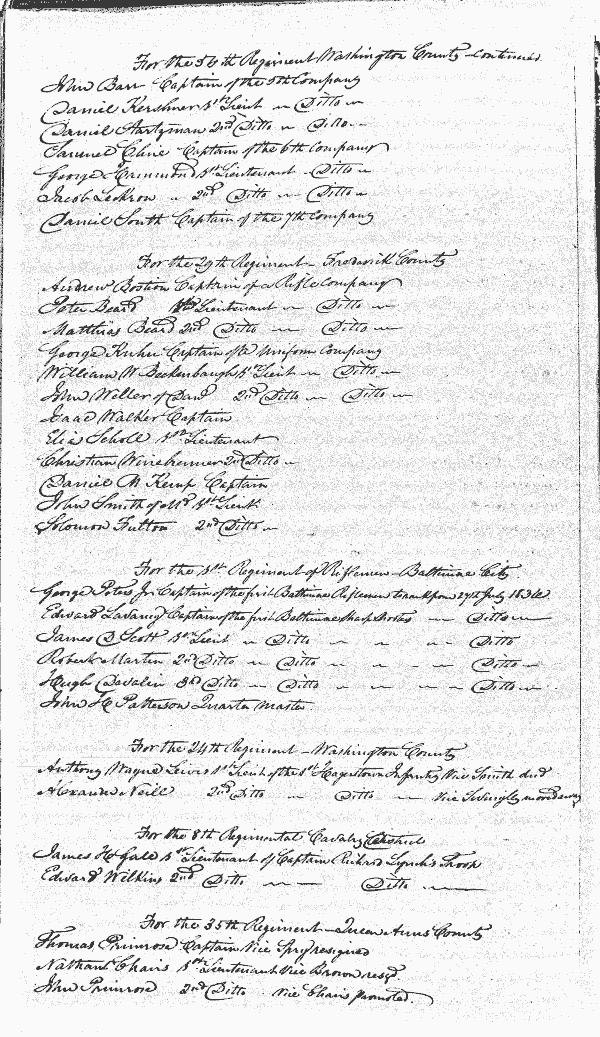 For the 56th Regiment Washington County continued
John Barr Captain of the 5th Company
Daniel Kershner 1st Lieut Ditto
Daniel Startzman 2nd Ditto Ditto
Samuel Cline Captain of the 6th Company
George Hammond 1st Lieutenant Ditto
Jacob Leokrow 2nd Ditto Ditto
Daniel South Captain of the 7th Company
For the 29th Regiment Frederick County
Andrew Bostion Captain of a Rifle Company
Peter Beard 1st Lieutenant Ditto
Matthias Beard 2nd Ditto Ditto
George Kuhn Captain of a Uniform Company
William W Beckenbaugh 1st Lieut Ditto
John Weller of Danl 2nd Ditto Ditto
Isaac Walker Captain
Elias Scholl 1st Lieutenant
Christian Winebrenner 2nd Ditto
Daniel M Kemp Captain
John Smith of Md 1st Lieut
Solomon Fulton 2nd Ditto
For the 1st Regiment of Riflemen Baltimore City
George Peters Jr. Captain of the first Baltimore Riflemen to rank from 27th July 1836
Edward Captain of the first Baltimore Sharp Shooters Ditto
James D Scott 1st Lieut Ditto Ditto
Robert Martin 2nd Ditto Ditto Ditto
Hugh Devalin 3rd Ditto Ditto Ditto
John H Patterson Quarter Master
For the 24th Regiment Washington County
Anthony Wayne Lewis 1st Lieut of the 1st Hagerstown Infantry Vice Smith died
Alexander Neill 2nd Ditto Ditto Vice moved away
For the 8th Regimental Cavalry District
James H Gale 1st Lieutenant of Captain Richard Lynch's Troop
Edward Wilkins 2nd Ditto Ditto
For the 35th Regiment Queen Anns County
Thomas Primrose Captain Vice Spry resigned
Nathan Chairs 1st Lieutenant Vice Brown resgd
John Primrose 2nd Ditto Vice Chairs promoted.